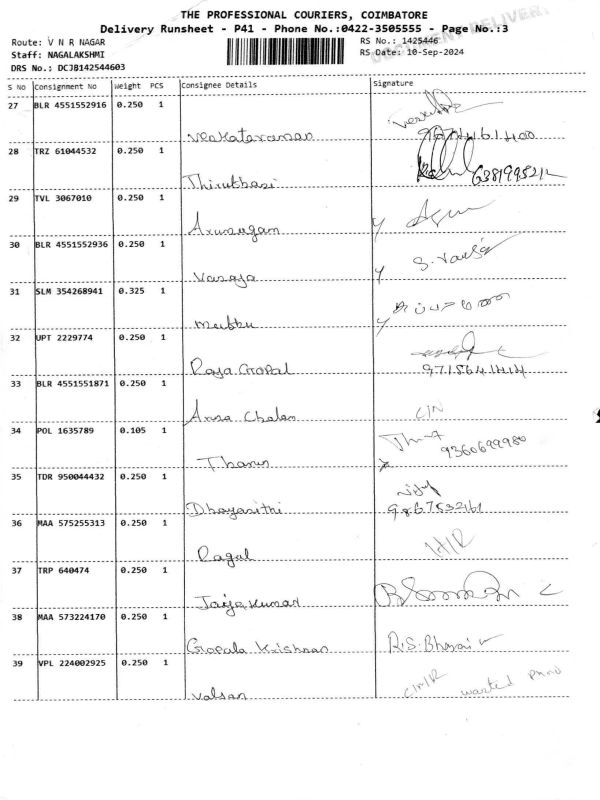 THE PROFESSIONAL COURIERS, COIMBATORE
Delivery Runsheet - P41 - Phone No.:0422-3505555 - Page No.:3
Route: V N R NAGAR
RS No.: 1425446
Staff: NAGALAKSHMI
RS Date: 10-Sep-2024
DRS No.: DCJB142544603
S No Consignment No Weight PCS Consignee Details Signature
27 BLR 4551552916 0.250 1
Venkataraman
28 TRZ 61044532 0.250 1
Thirubbasi
29 TVL 3067010 0.250 1
Arumugam
30 BLR 4551552936 0.250 1
S. Varsa
Varaja
31 SLM 354268941 0.325 1
Muthu
32 UPT 2229774 0.250 1
Raja Gopal 9715641414
33 BLR 4551551871 0.250 1
C/N
Aruna Chalam
34 POL 1635789 0.105 1
9360699980
Tharun
35 TDR 950044432 0.250 1
Dhayanithi 9867532161
36 MAA 575255313 0.250 1
Ragal
37 TRP 640474 0.250 1
Jaya Kumar
38 MAA 573224170 0.250 1
Gopala Krishnan R.S. Bhavani
39 VPL 224002925 0.250 1
Valsan wanted